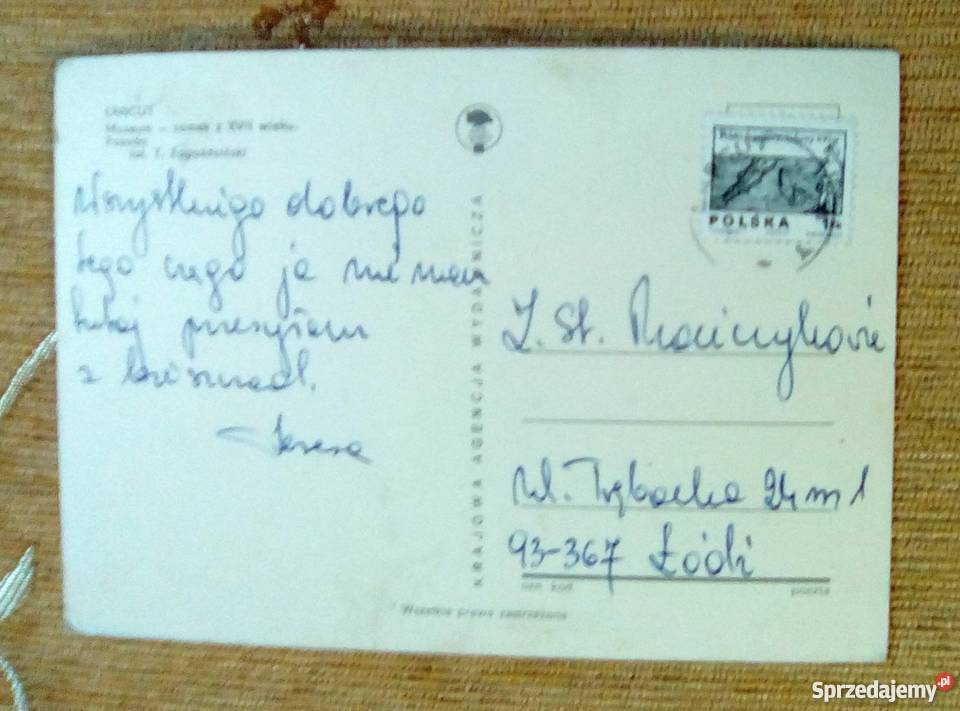 ŁAŃCUT
Muzeum – zamek z XVII wieku.
fot. T.
Wszystkiego dobrego
tego czego ja nie mam
tutaj przesyłam
z
Teresa
KRAJOWA AGENCJA WYDAWNICZA
POLSKA
Z. St.
ul. Trębacka 24 m 1
93-367 Łódź
poczta
Wszelkie prawa zastrzeżone
Sprzedajemy.pl